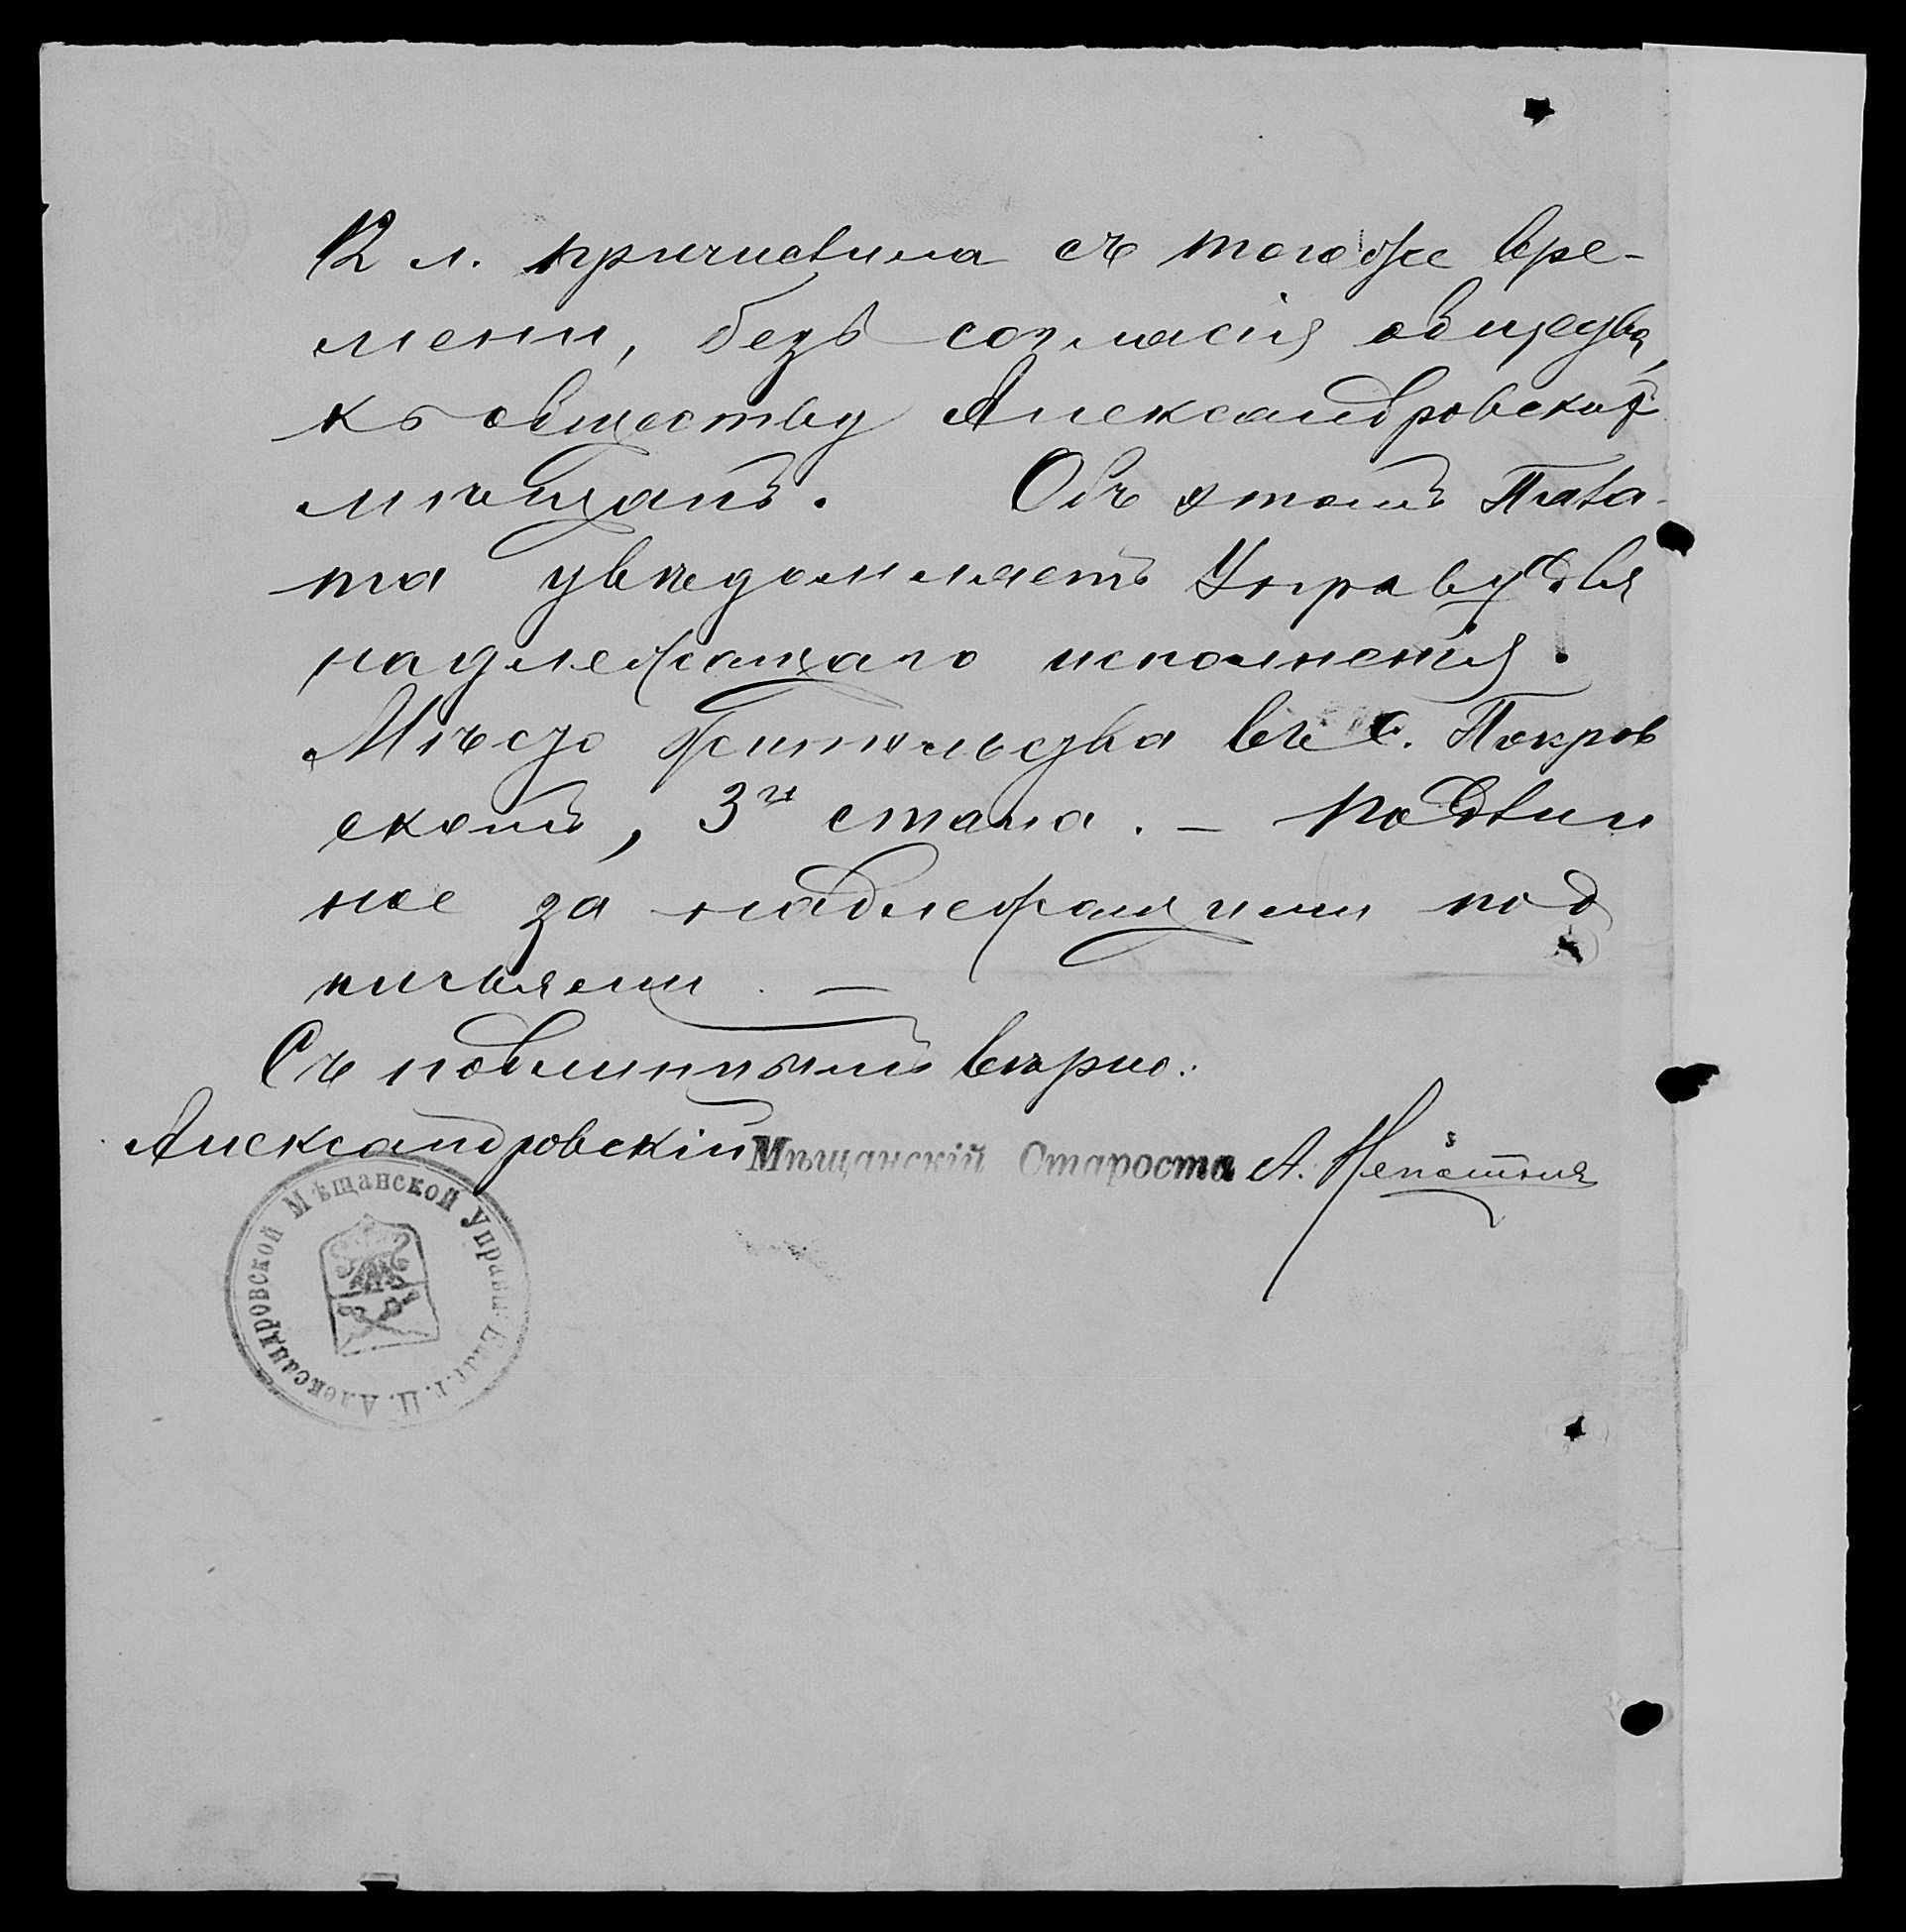 12 л. причислила съ тогоже вре-
мени, безъ согласія общества,
къ обществу Александровскихъ
мѣщанъ. Объ этомъ Пала-
та увѣдомляетъ Управу для
надлежащаго исполненія.
Мѣсто жительства въ с. Покров
скомъ, 3го стана. — Подлин
ное за надлежащими под
писями. —
Съ подлиннымъ вѣрно:
Александровскій Мѣщанскій Староста А.
Александровской Мѣщанской Управы Екат. г. П.